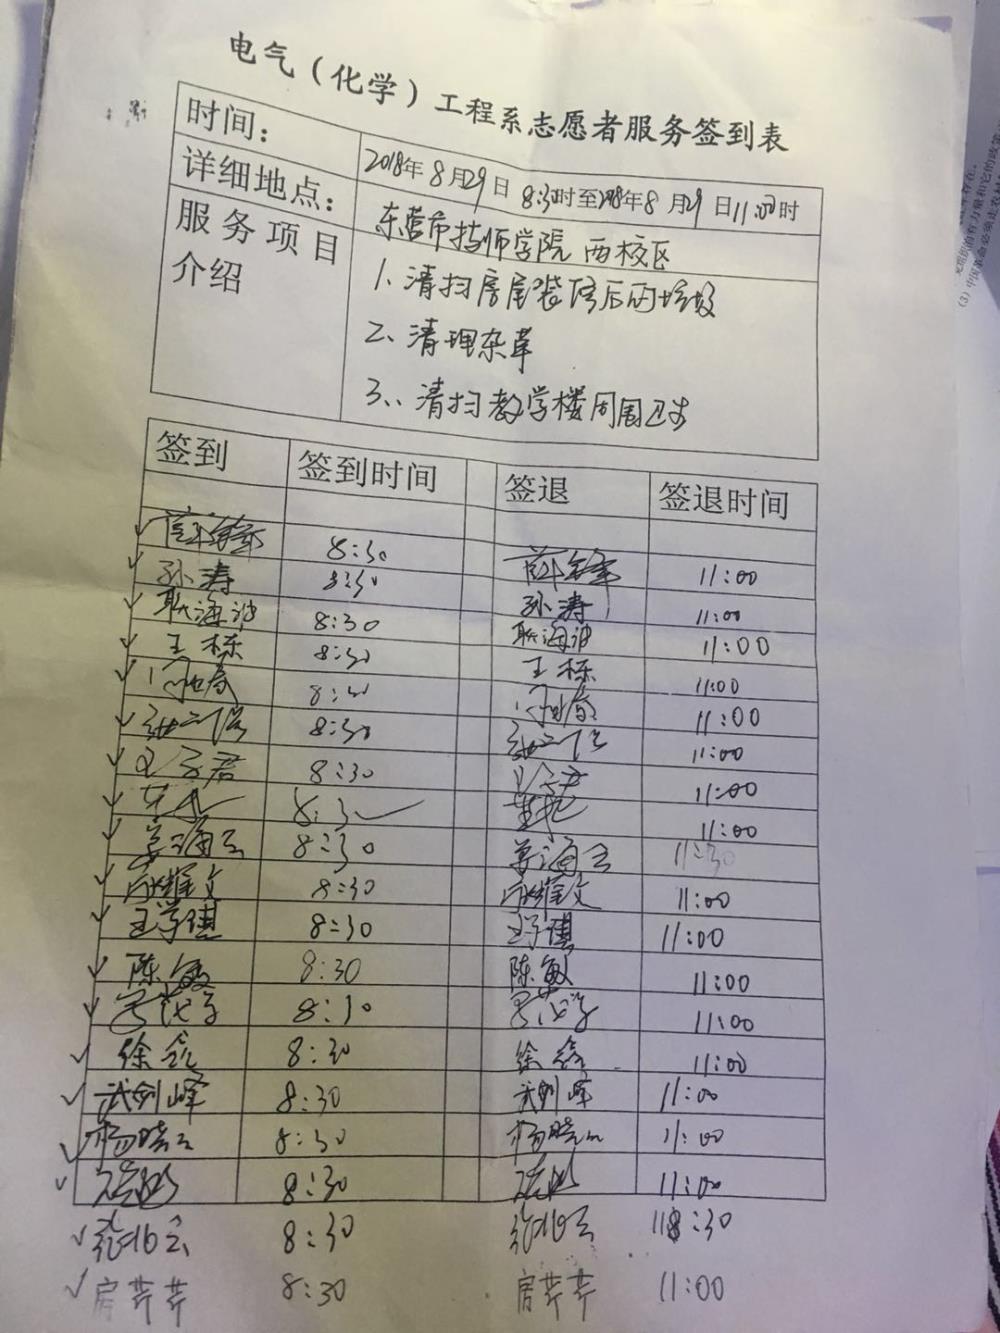 电气（化学）工程系志愿者服务签到表
时间： 2018年8月29日 8:30时至2018年8月29日11:00时
详细地点： 东营市技师学院 西校区
服务项目介绍 1、清扫房屋装修后的垃圾
2、清理杂草
3、清扫教学楼周围卫生
签到 签到时间 签退 签退时间
8:30 11:00
孙涛 8:30 孙涛 11:00
耿海波 8:30 耿海波 11:00
王栋 8:30 王栋 11:00
8:30 11:00
8:30 11:00
8:30 11:00
8:30 11:00
姜海云 8:30 姜海云 11:30
8:30 11:00
王学琪 8:30 王学琪 11:00
陈敏 8:30 陈敏 11:00
8:30 11:00
徐鑫 8:30 徐鑫 11:00
武剑峰 8:30 武剑峰 11:00
杨晓云 8:30 杨晓云 11:00
8:30 11:00
8:30 :30
房芹芹 8:30 房芹芹 11:00